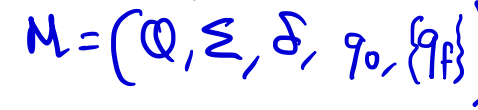 M = (Q, Σ, δ, q₀, {q_f}